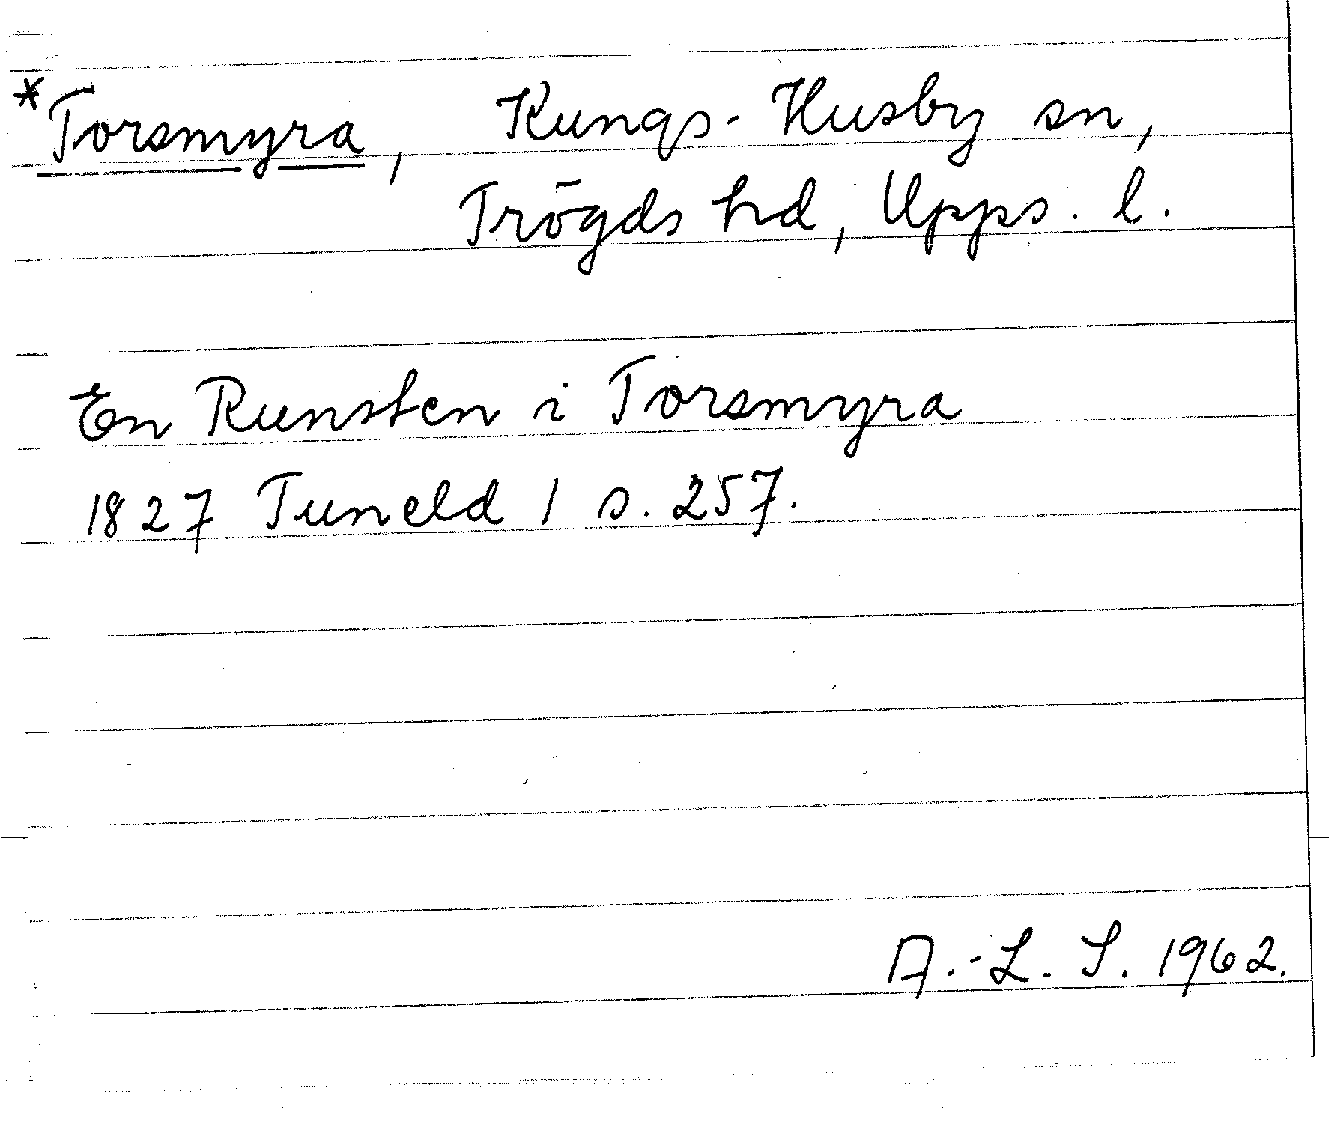 *Torsmyra, Kungs-Husby sn,
Trögds hd, Upps. l.
En Runsten i Torsmyra
1827 Tuneld 1 s. 257.
A.-L. S. 1962.